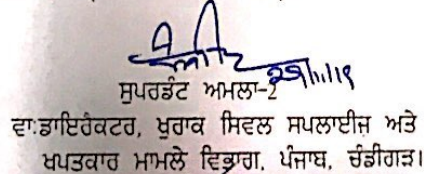 29/11/19
ਸੁਪਰਡੰਟ ਅਮਲਾ-2
ਵਾ:ਡਾਇਰੈਕਟਰ, ਖੁਰਾਕ ਸਿਵਲ ਸਪਲਾਈਜ਼ ਅਤੇ
ਖਪਤਕਾਰ ਮਾਮਲੇ ਵਿਭਾਗ, ਪੰਜਾਬ, ਚੰਡੀਗੜ।